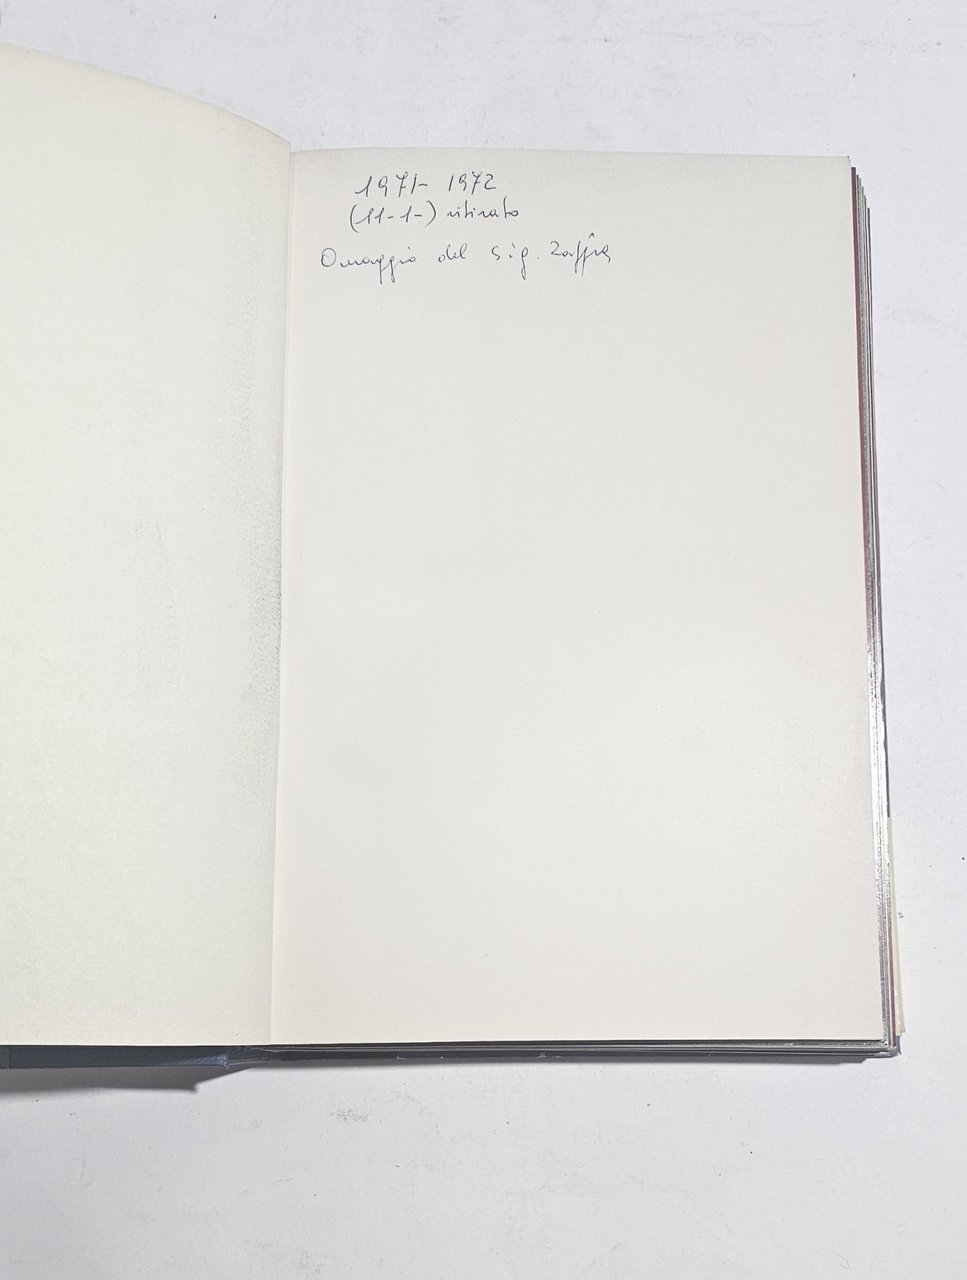 1971- 1972
(11-1-) ritirato
Omaggio del Sig.